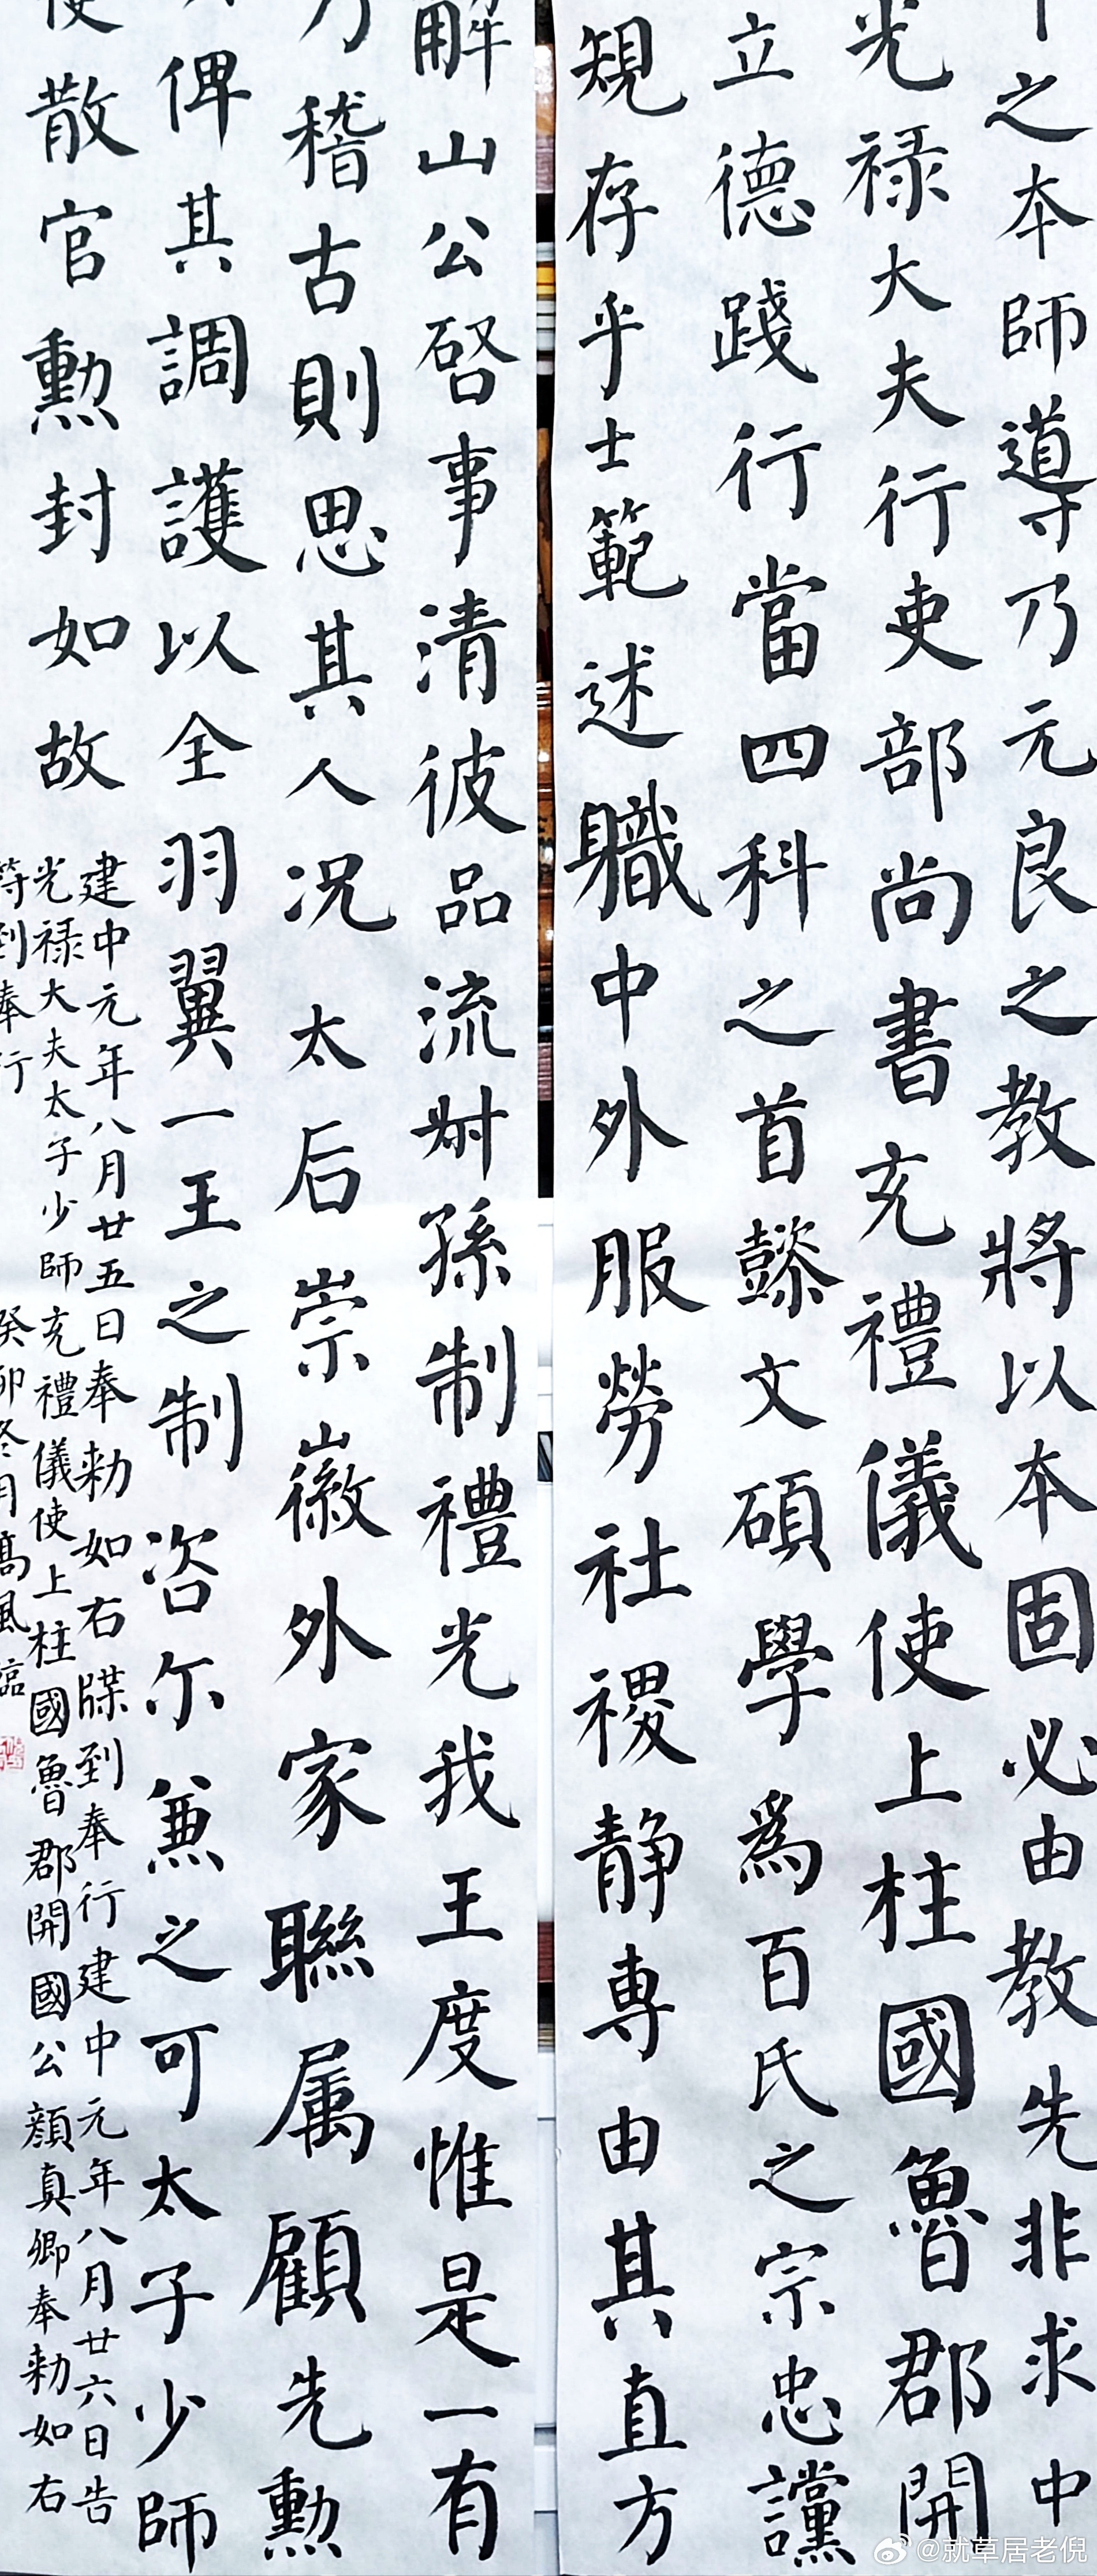 之本師導乃元良之教將以本固必由教先非求中
光禄大夫行吏部尚書充禮儀使上柱國魯郡開
立德踐行當四科之首懿文碩學為百氏之宗忠讜
規存乎士範述職中外服勞社稷静專由其直方
解山公啓事清彼品流叔孫制禮光我王度惟是一有
乃稽古則思其人况太后崇徽外家聯属顧先勲
俾其調護以全羽翼一王之制咨尔兼之可太子少師
使散官勲封如故
建中元年八月廿五日奉勑如右牒到奉行建中元年八月廿六日告
光禄大夫太子少師充禮儀使上柱國魯郡開國公顔真卿奉勑如右
等到奉行 癸卯冬月高風臨
@就草居老倪